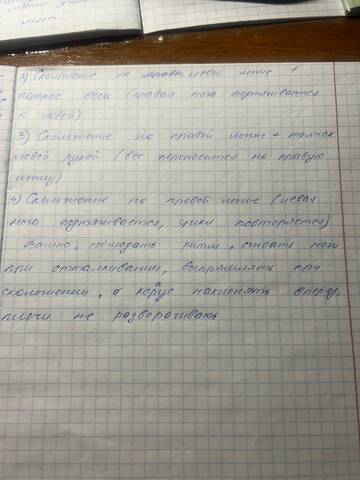 2) Скольжение по левой лыже +
перенос веса (правая нога подтягивается
к левой)
3) Скольжение по правой лыже + толчок
левой рукой (вес переносится на правую
лыжу)
4) Скольжение по правой лыже (левая
нога подтягивается, цикл повторяется)
Важно, соблюдать ритм, сгибать ноги
при отталкивании, выпрямлять при
скольжении, а корпус наклонять вперед,
плечи не разворачивать